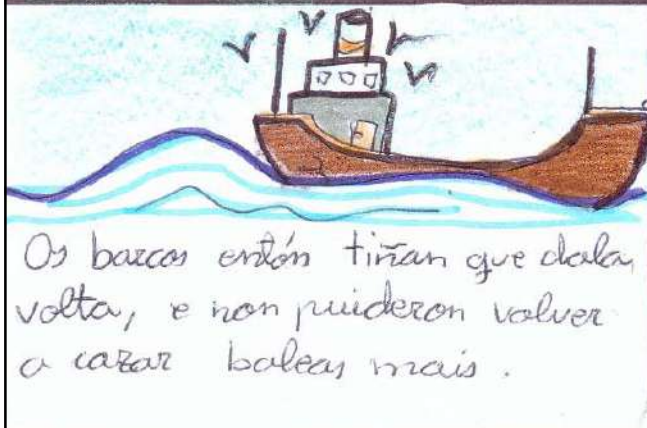 Os barcos entón tiñan que dala
volta, e non puideron volver
a cazar baleas mais.